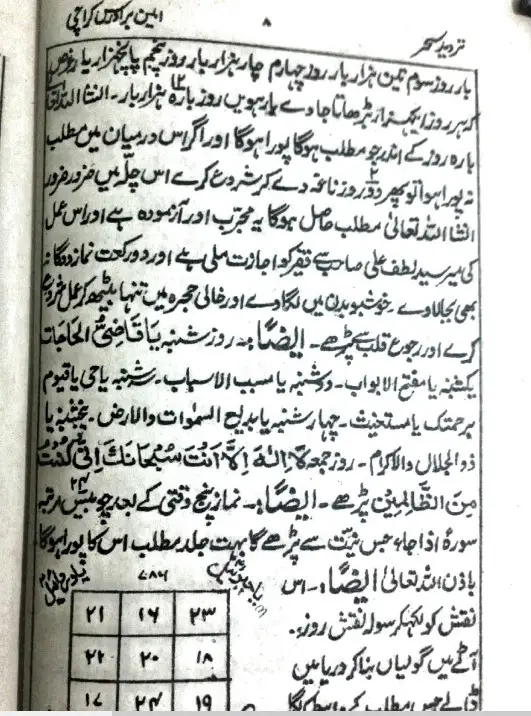 امین برادرس کراچی
۸
تردید سحر
بار روز سوم تین ہزار بار روز چہارم چار ہزار بار روز پنجم پانچہزار بار غرض
کہ ہر روز ایکہزار بڑھاتا جاوے بارہویں روز بارہ ۱۲ ہزار بار۔ انشاء اللہ تعالیٰ
بارہ روز کے اندر جو مطلب ہوگا پورا ہوگا اور اگر اس درمیان میں مطلب
نہ پورا ہوا تو پھر دو ۲ روز ناغہ دے کر شروع کرے اس چلّہ میں ضرور ضرور
انشا اللہ تعالیٰ مطلب حاصل ہوگا یہ مجرّب اور آزمودہ ہے اور اس عمل
کی میر سید لطف علی صاحب سے فقیر کو اجازت ملی ہے اور دو رکعت نماز دوگانہ
بھی بجا لاوے۔ خوشبو بدن میں لگاوے اور خالی حجرہ میں تنہا بیٹھ کر عمل شروع
کرے اور رجوع قلب سے پڑھے۔ ایضًا:۔ روز شنبہ یَا قَاضِیَ الْحَاجَات
یکشنبہ یا مفتح الابواب۔ دوشنبہ یا مسبب الاسباب۔ سہ شنبہ یا حی یا قیوم
برحمتک یا مستغیث۔ چہار شنبہ یا بدیع السمٰوات والارض۔ پنجشنبہ یا
ذوالجلال والاکرام۔ روز جمعہ لَا اِلٰہَ اِلَّا اَنْتَ سُبْحَانَكَ اِنِّیْ كُنْتُ
مِنَ الظَّالِمِیْنَ پڑھے۔ ایضًا:۔ نماز پنج وقتی کے بعد چوبیس ۲۴ مرتبہ
سورۂ اذا جاء جس نیّت سے پڑھے گا بہت جلد مطلب اس کا پورا ہوگا
باذن اللہ تعالیٰ ایضًا:۔ اس
۷۸۶
نقش کو لکھکر سولہ نقش روز۔
آٹے میں گولیاں بنا کر دریا میں
ڈالے جس مطلب کے واسطے
۲۱ ۱۶ ۲۳
۲۲ ۲۰ ۱۸
۱۷ ۲۴ ۱۹